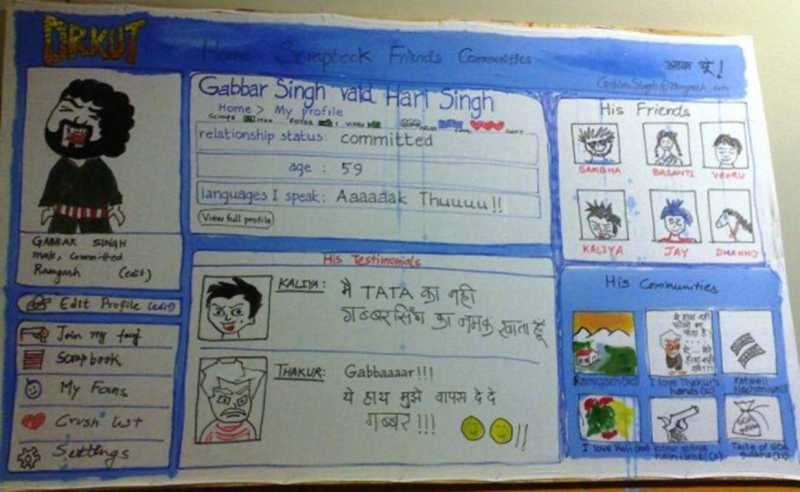 ORKUT
Home Scrapbook Friends Communities
Gabbar Singh Vald Hari Singh
Home > My profile
relationship status: committed
age : 59
languages I speak: Aaaaaak Thuuuu!!
View full profile
GABBAR SINGH
male, committed
Ramgarh (edit)
Edit Profile (edit)
Join my gang
Scrapbook
My Fans
Crush list
Settings
His Testimonials
KALIYA: मै TATA का नही
गब्बर सिंघ का नमक खाता हूँ
THAKUR: Gabbaaaar!!!
ये हाथ मुझे वापस दे दे
गब्बर !!!
!!
His Friends
SAMBHA BASANTI VEERU
KALIYA JAY DHANNO
His Communities
I love Thakur's
hands
I love